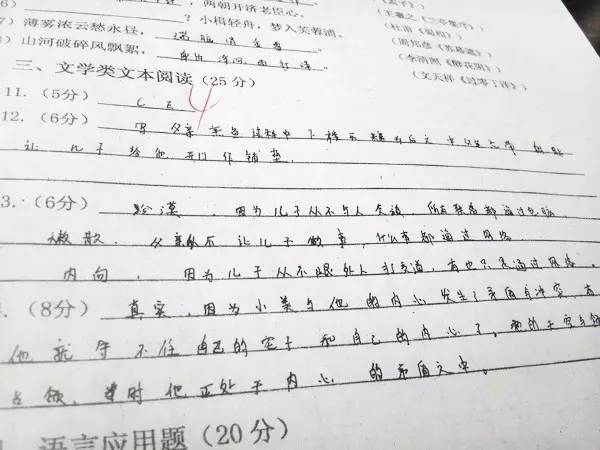 两朝开济老臣心。
《王羲之《兰亭集序》》
? 小楫轻舟，梦入芙蓉浦。
（杜甫《蜀相》）
7）薄雾浓云愁永昼， 瑞脑消金兽 "
（周邦彦《苏幕遮》）
8）山河破碎风飘絮， 身世浮沉雨打萍 "
（李清照《醉花阴》）
（文天祥《过零丁洋》）
三、文学类文本阅读（25分）
11.（5分） C E 4
12.（6分） 写父亲
让儿子给他开门作铺垫。
3.（6分） 冷漠，因为儿子从不与人交谈，所有
懒散，父亲从不让儿子做事，什么事都通过网络
内向，因为儿子从不跟外人打交道，有也只是通过网络。
（8分）真实，因为小美与他的内心发生了矛盾与冲突，
他就守不住自己的空子和自己的内心了，
占领，当时他正处于内心的矛盾之中。
语言应用题（20分）